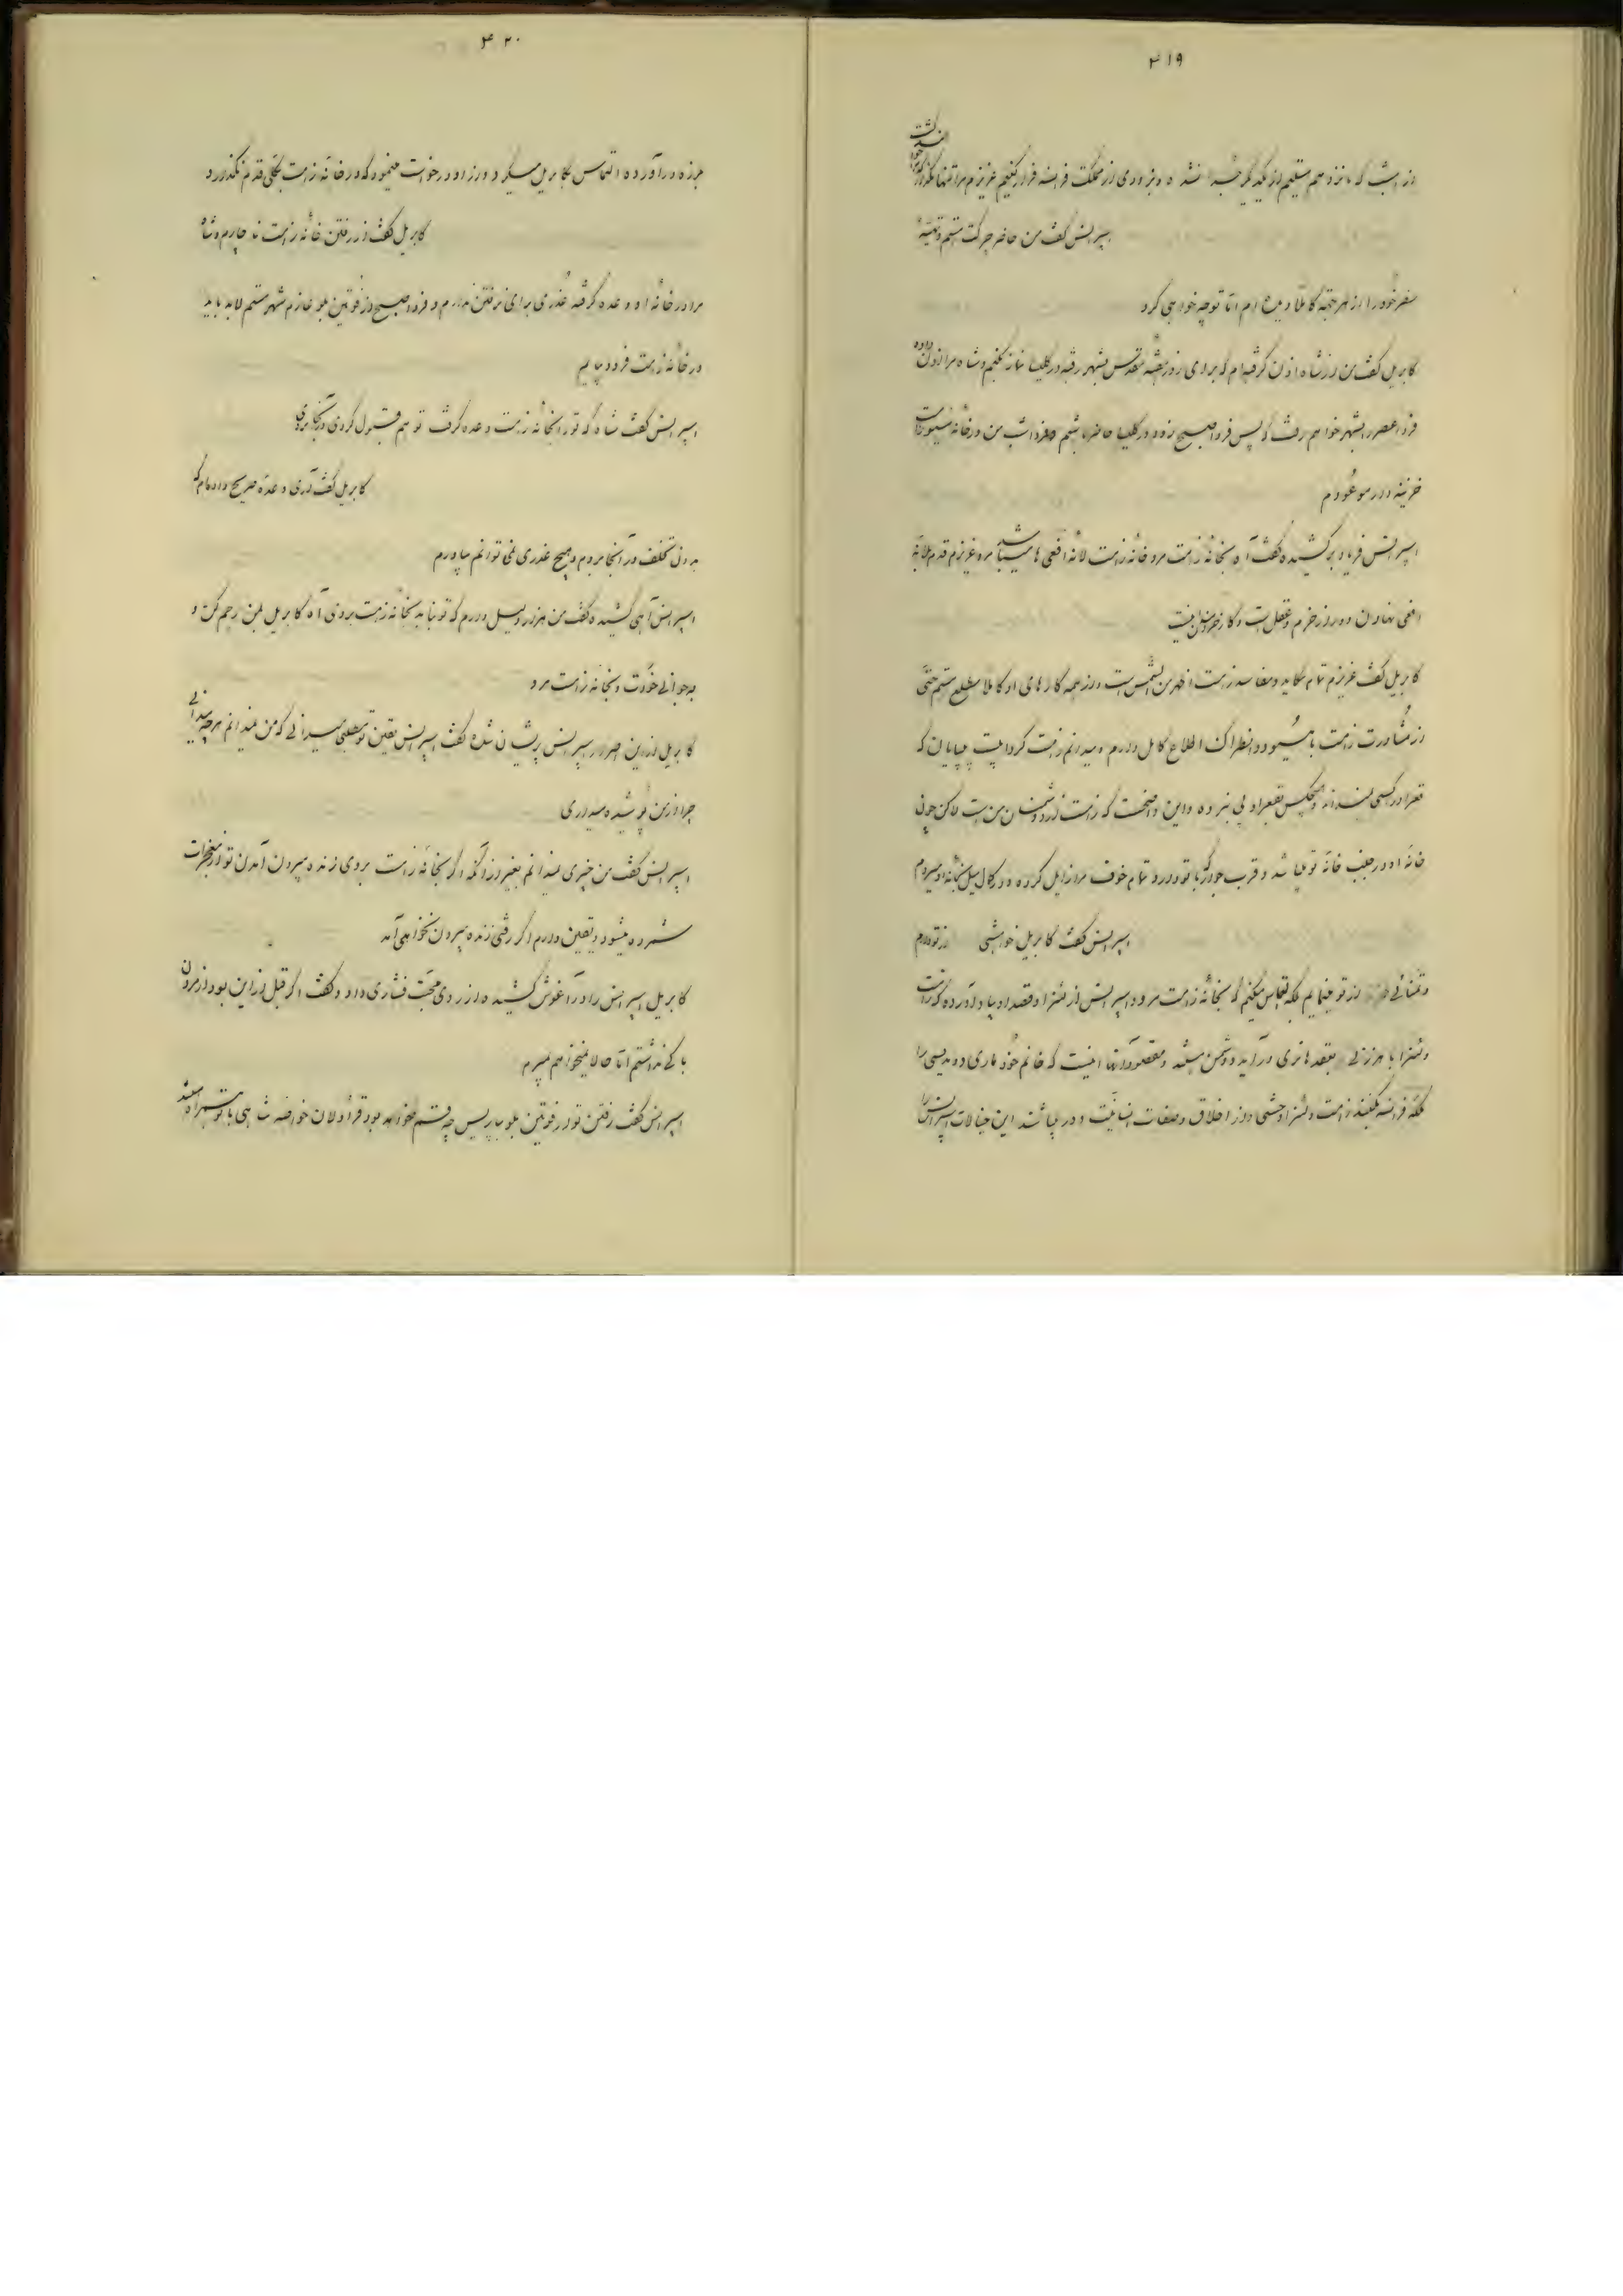 ۴۱۹
از شب که ما نزد هم هستیم از یکدیگر جدا نشده و بزودی از مملکت فرانسه فرار کنیم عزیزم مرا تنها مگذار
اسپرانس گفت من حاضر حرکت هستم و تهیه
سفر خود را از هر جهت کاملا دیده ام اما تو چه خواهی کرد
کابریل گفت من از شاه اذن گرفته ام که برای روز هفته مقدس بشهر رفته در کلیسا نماز کنیم و شاه مرا اذن داده
فردا عصر بشهر خواهم رفت که پس فردا صبح زود در کلیسا حاضر باشم و فردا شب من در خانه
خزینه دار موعودم
اسپرانس فریاد برکشیده گفت آه بخانه زامت مرو خانه زامت لانه افعی ها میباشد مرو عزیزم قدم بلانه
افعی نهادن دور از حزم و عقل است و کار خردمندان نیست
کابریل گفت عزیزم تمام مکاید و مفاسد زامت اظهر من الشمس است و از همه کارهای او کاملا مطلع هستم حتی
از مشاورت زامت با هانریت دانطراک اطلاع کامل دارم و میدانم زامت گردابیست بی پایان که
قعر او را کسی نمیداند و هیچکس بقعر او پی نبرده و این واضحست که زامت از دشمنان من است لاکن چون
خانه او در جنب خانه تو میباشد و قرب جوار که با تو دارد تمام خوف مرا زایل کرده و در کمال میل بخانه او میروم
اسپرانس گفت کابریل خواهشی از تو دارم
و تمنائی از تو مینمایم بلکه التماس میکنم که بخانه زامت مرو و اسپرانس از لئنرا و قصد او بیاد آورده که زامت
و لئنرا با هانری دانطراک و دشمن هستند و مقصود آنها اینست که خانم خود ماری دومدیسی را
ملکه فرانسه کنند زامت و لئنرا وحشی و از اخلاق و صفات انسانیت دور میباشند این خیالات اسپرانس را
۴۲۰
بلرزه درآورده التماس بکابریل میکرد و از او درخواست مینمود که در خانه زامت بکلی قدم نگذارد
کابریل گفت از رفتن خانه زامت ناچارم و شاه
مرا در خانه او وعده گرفته عذری برای نرفتن ندارم و فردا صبح از فونتن بلو عازم شهر هستم لابد باید
در خانه زامت فرود بیایم
اسپرانس گفت شاه که تو را بخانه زامت وعده گرفت تو هم قبول کردی که آنجا بروی
کابریل گفت آری وعده صریح داده ام که
بدون تخلف در آنجا بروم و هیچ عذری نمی توانم بیاورم
اسپرانس آهی کشیده گفت من هزار دلیل دارم که تو نباید بخانه زامت بروی آه کابریل بمن رحم کن و
بجوانی خودت و بخانه زامت مرو
کابریل از این اصرار اسپرانس پریشان شده گفت اسپرانس یقین تو مطلبی میدانی که من نمیدانم هر چه میدانی
چرا از من پوشیده میداری
اسپرانس گفت من چیزی نمیدانم بغیر از آنکه اگر بخانه زامت بروی زنده بیرون آمدن تو از معجزات
شمرده میشود و یقین دارم اگر رفتی زنده بیرون نخواهی آمد
کابریل اسپرانس را در آغوش کشیده و از روی محبت فشاری داد و گفت اگر قبل از این بود از مردن
باکی نداشتم اما حالا نمیخواهم بمیرم
اسپرانس گفت رفتن تو از فونتن بلو بپاریس چه قسم خواهد بود قراولان خواصه شاهی با تو همراه هستند